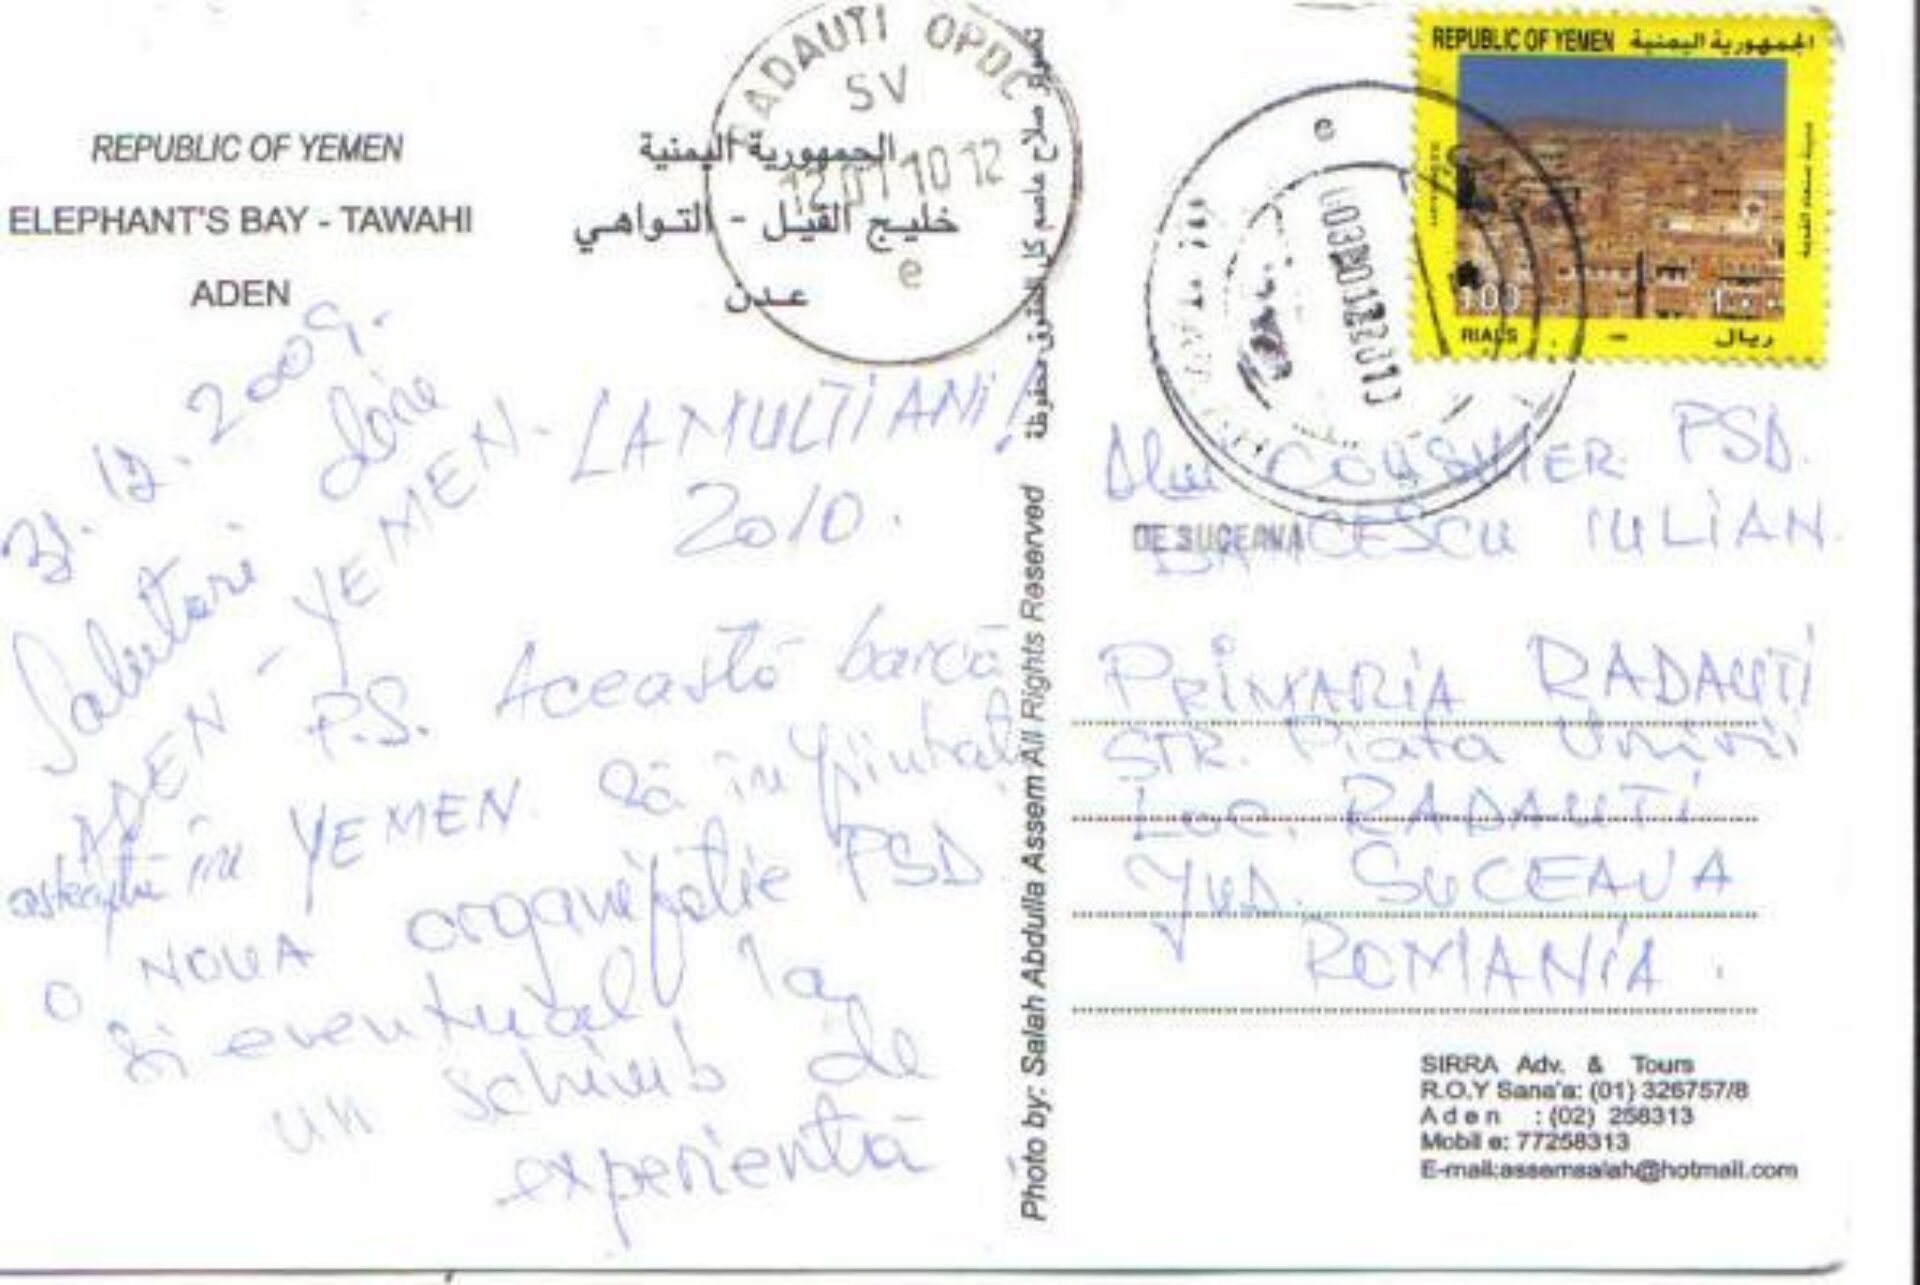 REPUBLIC OF YEMEN
ELEPHANT'S BAY - TAWAHI
ADEN
الجمهورية اليمنية
خليج الفيل - التواهي
عدن
RADAUTI OPDC
SV
10 12
e
31.12.2009.
Salutari din
ADEN - YEMEN - LA MULTI ANI!
2010.
P.S. Această barcă
așteaptă în YEMEN. Să
o NOUA organizatie PSD
si eventual la
un schimb de
experientă
Photo by: Salah Abdulla Assem All Rights Reserved
تصوير صلاح عاصم كل الحقوق محفوظة
REPUBLIC OF YEMEN الجمهورية اليمنية
100
RIALS ريال
e
DE SUCEAVA
PSD.
IULIAN.
PRIMARIA RADAUTI
STR. Piata Unirii
Loc. RADAUTI
JUD. SUCEAVA
ROMANIA.
SIRRA Adv. & Tours
R.O.Y Sana'a: (01) 326757/8
Aden : (02) 258313
Mobil e: 77258313
E-mail:assemsalah@hotmail.com